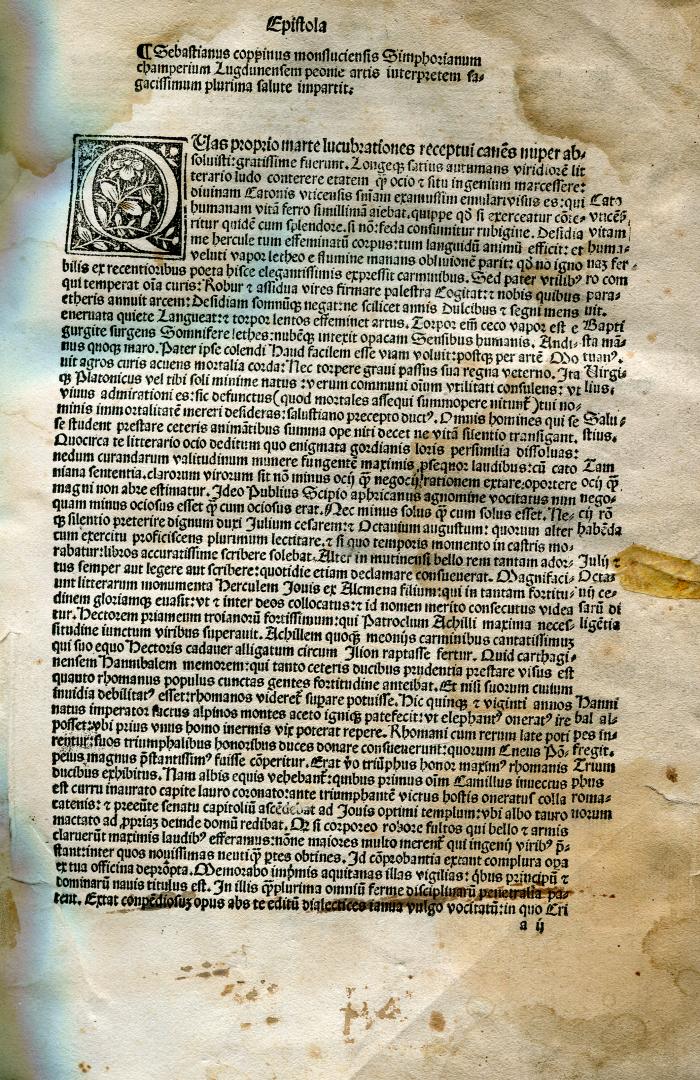 Epistola
¶ Sebastianus coppinus monsluciensis Simphorianum
champerium Lugdunensem peonie artis interpretem sa-
gacissimum plurima salute impartit:
QUas proprio marte lucubrationes receptui canēs nuper ab-
soluisti: gratissime fuerunt. Longeqꝫ satius autumans viridiorē lit
terario ludo conterere etatem ꝙ ocio ⁊ situ ingenium marcessere:
diuinam Catonis vticensis sniam examussim emulari visus es: qui
Cato
humanam vitā ferro simillimā aiebat. quippe qd si exerceatur cōte-
vticēs̄
ritur quidē cum splendore. si nō: feda consumitur rubigine. Desidia
vitam
me hercule tum effeminatū corpus: tum languidū animū efficit: et
huma-
veluti vapor letheo e flumine manans obliuionē parit: qd no igno
naz fer-
bilis ex recentioribus poeta hisce elegantissimis expressit carminibus. Sed pater vtilibꝰ
ro com
qui temperat oīa curis: Robur ⁊ assidua vires firmare palestra Cogitat: ⁊ nobis quibus
para-
etheris annuit arcem: Desidiam somnūqꝫ negat: ne scilicet annis Dulcibus ⁊ segni mens
uit.
eneruata quiete Langueat: ⁊ torpor lentos effeminet artus. Torpor eīm ceco vapor est e
Bapti
gurgite surgens Somnifere lethes: nubēqꝫ intexit opacam Sensibus humanis. Andi-
sta mā
nus quoqꝫ maro. Pater ipse colendi Haud facilem esse viam voluit: postqꝫ per artē Mo
tuanꝰ.
uit agros curis acuens mortalia corda: Nec torpere graui passus sua regna veterno. Ita
Virgi-
qꝫ Platonicus vel tibi soli minime natus: verum communi oīum vtilitati consulens: vt
lius.
viuus admirationi es: sic defunctus (quod mortales assequi summopere nitunt) tui no-
minis immortalitatē mereri desideras: salustiano precepto ductꝰ. Omnis homines qui se
Salu-
se student prestare ceteris animātibus summa ope niti decet ne vitā silentio transigant.
stius.
Quocirca te litterario ocio deditum quo enigmata gordianis loris persimilia dissoluas:
nedum curandarum valitudinum munere fungentē maximis ꝓsequor laudibus: cū cato
Tam
niana sententia. clarorum virorum sit nō minus ocij ꝙ negocij rationem extare: oportere
ocij ꝙ
magni non abre estimatur. Ideo Publius Scipio aphricanus agnomine vocitatus nun
nego-
quam minus ociosus esset ꝙ cum ociosus erat. Nec minus solus ꝙ cum solus esset. Ne-
cij rō
qꝫ silentio preterire dignum duxi Julium cesarem: ⁊ Octauium augustum: quorum alter
habēda
cum exercitu proficiscens plurimum lectitare. ⁊ si quo temporis momento in castris mo-
rabatur: libros accuratissime scribere solebat. Alter in mutinensi bello rem tantam ador-
Julij ⁊
tus semper aut legere aut scribere: quotidie etiam declamare consueuerat. Magnifaci-
Octa-
unt litterarum monumenta Herculem Jouis ex Alcmena filium: qui in tantam fortitu-
uij ce-
dinem gloriamqꝫ euasit: vt ⁊ inter deos collocatus: ⁊ id nomen merito consecutus videa
sarū di
tur. Hectorem priameum troianorū fortissimum: qui Patroclum Achilli maxima neces-
ligētia
situdine iunctum viribus superauit. Achillem quoqꝫ meonijs carminibus cantatissimuz
qui suo equo Hectoris cadauer alligatum circum Ilion raptasse fertur. Quid carthagi-
nensem Hannibalem memorem: qui tanto ceteris ducibus prudentia prestare visus est
quanto rhomanus populus cunctas gentes fortitudine anteibat. Et nisi suorum cuium
inuidia debilitatꝰ esset: rhomanos videret supare potuisse. Hic quinqꝫ ⁊ viginti annos
Hanni
natus imperator factus alpinos montes aceto igniqꝫ patefecit: vt elephantꝰ oneratꝰ ire
bal al-
posset: vbi prius vnus homo inermis vix poterat repere. Rhomani cum rerum late poti
pes in-
rentur: suos triumphalibus honoribus duces donare consueuerunt: quorum Cneus Pō-
fregit.
peius magnus p̄stantissimꝰ fuisse cōperitur. Erat v̄o triūphus honor maximꝰ rhomanis
Trium
ducibus exhibitus. Nam albis equis vehebant̄: quibus primus oīm Camillus inuectus
phus
est curru inaurato capite lauro coronato: ante triumphantē victus hostis oneratus colla
roma-
catenis: ⁊ preeūte senatu capitoliū ascēdebat ad Jouis optimi templum: vbi albo tauro
norum
mactato ad ꝓpriaꝫ deinde domū redibat. Qꝫ si corporeo robore fultos qui bello ⁊ armis
claruerūt maximis laudibꝰ efferamus: nōne maiores multo merent̄ qui ingenij viribꝰ p̄-
stant: inter quos nouissimas neutiꝙ ptes obtines. Id cōprobantia extant complura opa
ex tua officina deprōpta. Memorabo imp̄mis aquitanas illas vigilias: qbus principū ⁊
dominarū nauis titulus est. In illis ꝙplurima omniū ferme disciplinarū penetralia pa-
tent. Extat conpēdiosuꝫ opus abs te editū dialectices ianua vulgo vocitatū: in quo Cri
a ij